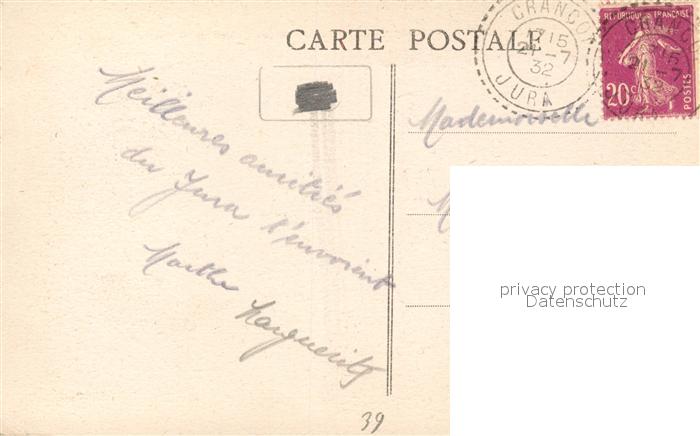 CARTE POSTALE
CRANÇO
7 15
21-7
32
JURA
REPUBLIQUE FRANÇAISE
20c
POSTES
Meilleures amitiés
du Jura t'envoient
Marthe Marguerite
Mademoiselle
M
privacy protection
Datenschutz
39